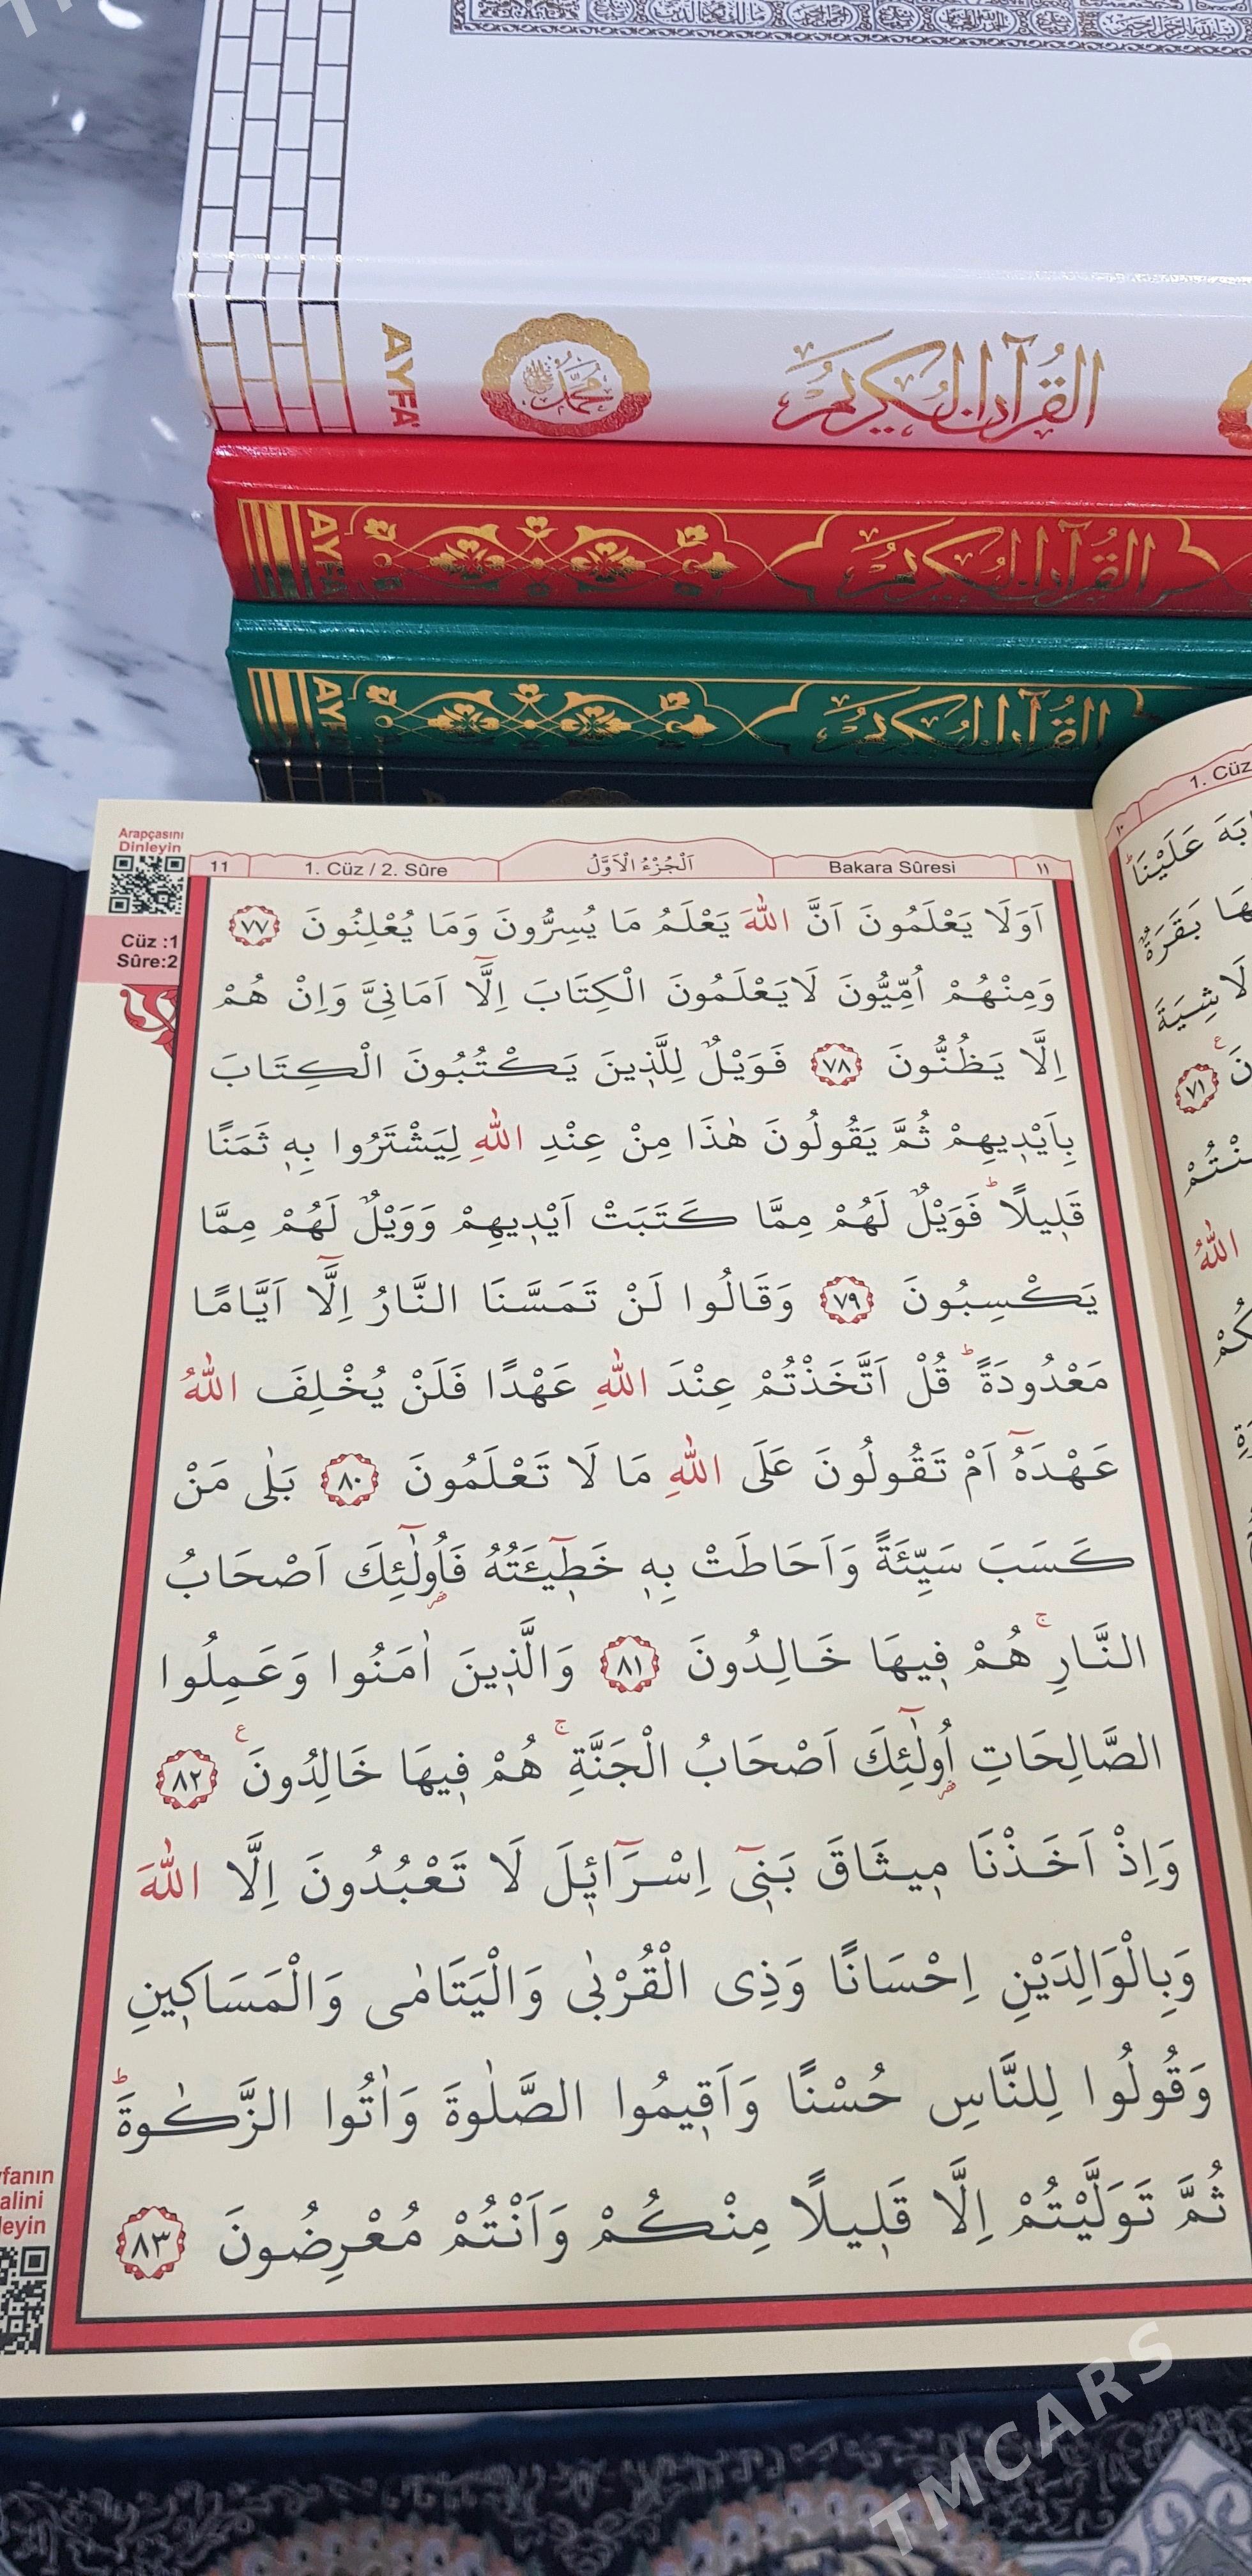 AYFA
محمد
القرآن الكريم
AYFA
القرآن الكريم
القرآن الكريم
Arapçasını
Dinleyin
11
1. Cüz / 2. Sûre
اَلْجُزْءُ الْاَوَّلُ
Bakara Sûresi
١١
Cüz :1
Sûre:2
اَوَلَا يَعْلَمُونَ اَنَّ اللّٰهَ يَعْلَمُ مَا يُسِرُّونَ وَمَا يُعْلِنُونَ ﴿٧٧﴾
وَمِنْهُمْ اُمِّيُّونَ لَايَعْلَمُونَ الْكِتَابَ اِلَّٓا اَمَانِيَّ وَاِنْ هُمْ
اِلَّا يَظُنُّونَ ﴿٧٨﴾ فَوَيْلٌ لِلَّذ۪ينَ يَكْتُبُونَ الْكِتَابَ
بِاَيْد۪يهِمْ ثُمَّ يَقُولُونَ هٰذَا مِنْ عِنْدِ اللّٰهِ لِيَشْتَرُوا بِه۪ ثَمَنًا
قَل۪يلًاۜ فَوَيْلٌ لَهُمْ مِمَّا كَتَبَتْ اَيْد۪يهِمْ وَوَيْلٌ لَهُمْ مِمَّا
يَكْسِبُونَ ﴿٧٩﴾ وَقَالُوا لَنْ تَمَسَّنَا النَّارُ اِلَّٓا اَيَّامًا
مَعْدُودَةًۜ قُلْ اَتَّخَذْتُمْ عِنْدَ اللّٰهِ عَهْدًا فَلَنْ يُخْلِفَ اللّٰهُ
عَهْدَهُٓ اَمْ تَقُولُونَ عَلَى اللّٰهِ مَا لَا تَعْلَمُونَ ﴿٨٠﴾ بَلٰى مَنْ
كَسَبَ سَيِّئَةً وَاَحَاطَتْ بِه۪ خَط۪ٓيـَٔتُهُ فَاُو۬لٰٓئِكَ اَصْحَابُ
النَّارِۚ هُمْ ف۪يهَا خَالِدُونَ ﴿٨١﴾ وَالَّذ۪ينَ اٰمَنُوا وَعَمِلُوا
الصَّالِحَاتِ اُو۬لٰٓئِكَ اَصْحَابُ الْجَنَّةِۚ هُمْ ف۪يهَا خَالِدُونَ۟ ﴿٨٢﴾
وَاِذْ اَخَذْنَا م۪يثَاقَ بَن۪ٓي اِسْرَٓائ۪لَ لَا تَعْبُدُونَ اِلَّا اللّٰهَ
وَبِالْوَالِدَيْنِ اِحْسَانًا وَذِي الْقُرْبٰى وَالْيَتَامٰى وَالْمَسَاك۪ينِ
وَقُولُوا لِلنَّاسِ حُسْنًا وَاَق۪يمُوا الصَّلٰوةَ وَاٰتُوا الزَّكٰوةَۜ
ثُمَّ تَوَلَّيْتُمْ اِلَّا قَل۪يلًا مِنْكُمْ وَاَنْتُمْ مُعْرِضُونَ ﴿٨٣﴾
1. Cüz
عَلَيْنَا
بَقَرَةٌ
لَا شِيَةَ
﴿٧١﴾
اللّٰهُ
TMCARS